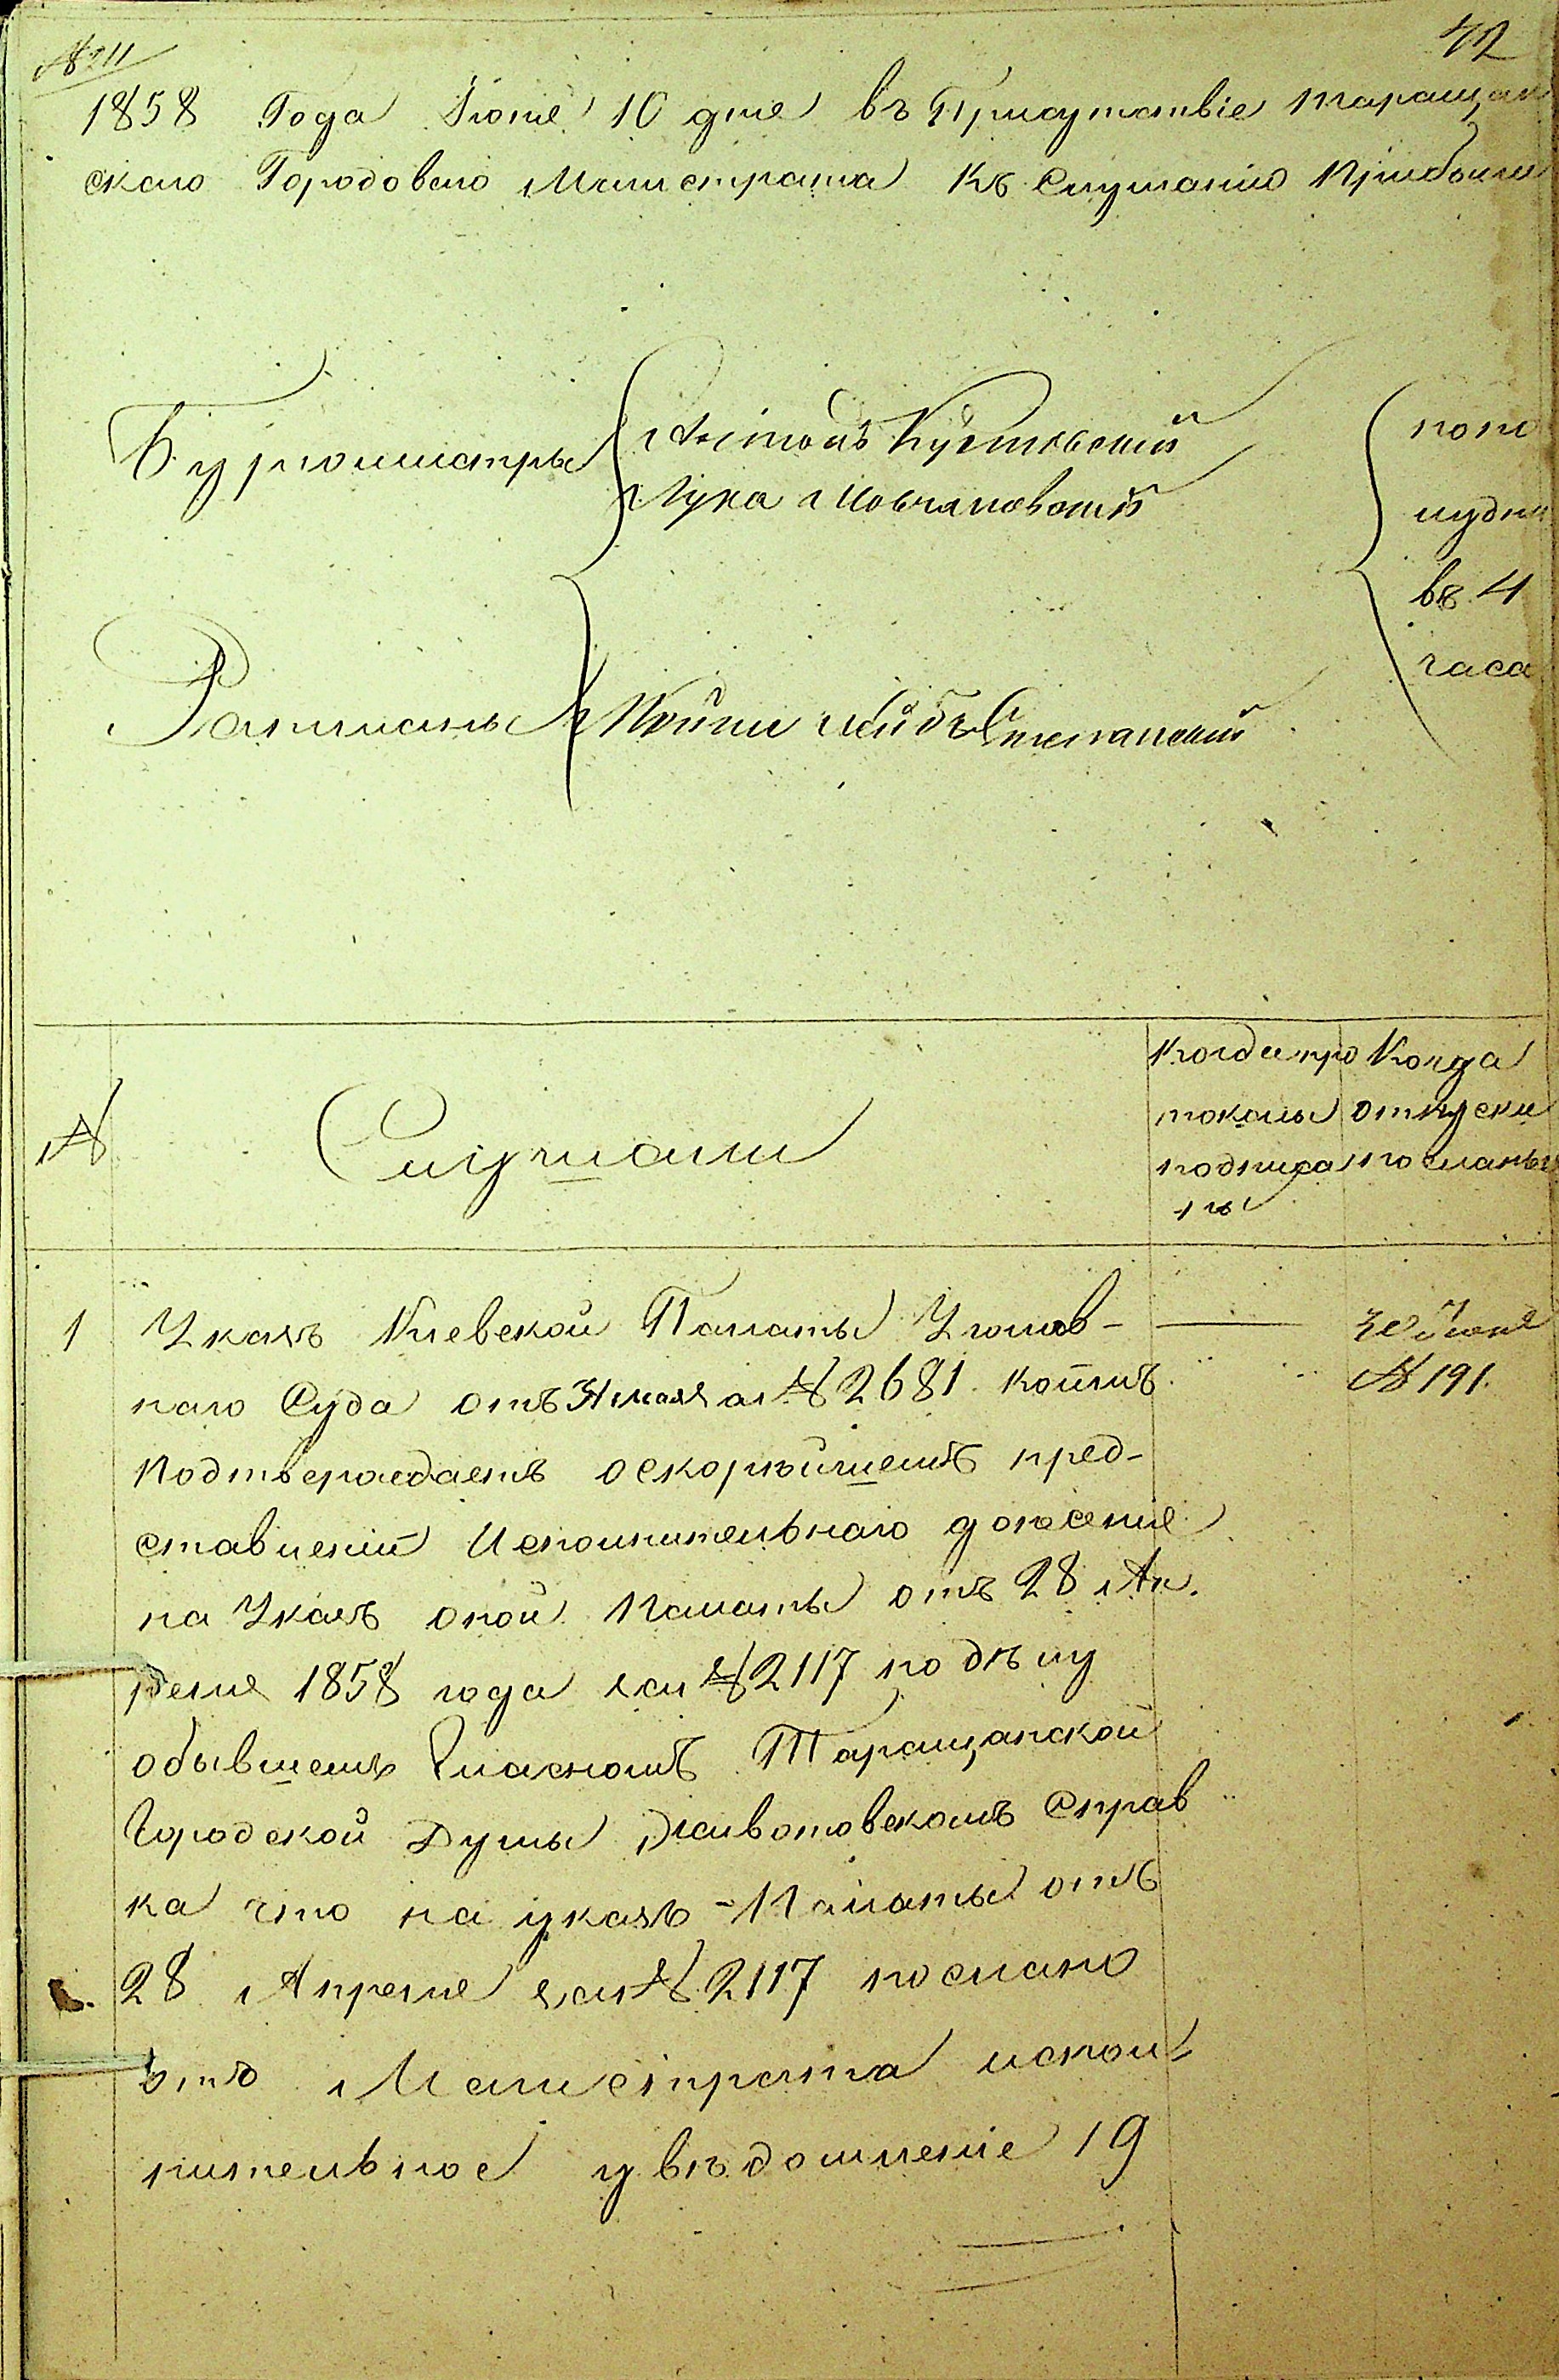 № 211
42
1858 Года Іюня 10 дня въ Присутствіе Таращан
скаго Городоваго Магистрата къ Слушанію прибыли
Бургомистры
Антонъ
Лука
попо
лудни
въ 4
часа
Ратманы
№
Слушали
Когда про
токолы
подписа
ны
Когда
отпуски
посланы
1
Указъ Кіевской Палаты Уголов-
наго Суда отъ 31 мая за № 2681. коимъ
подтверждаетъ оскорѣйшемъ пред-
ставленіи Исполнительнаго донесенія
на Указъ оной Палаты отъ 28 Ап.
реля 1858 года за № 2117 по дѣлу
обывшемъ Гласномъ Таращанской
Городской Думы Животовскомъ Справ
ка что на указъ Палаты отъ
28 Апреля за № 2117 послано
отъ Магистрата испол-
нительное увѣдомленіе 19
Іюня
№ 191.